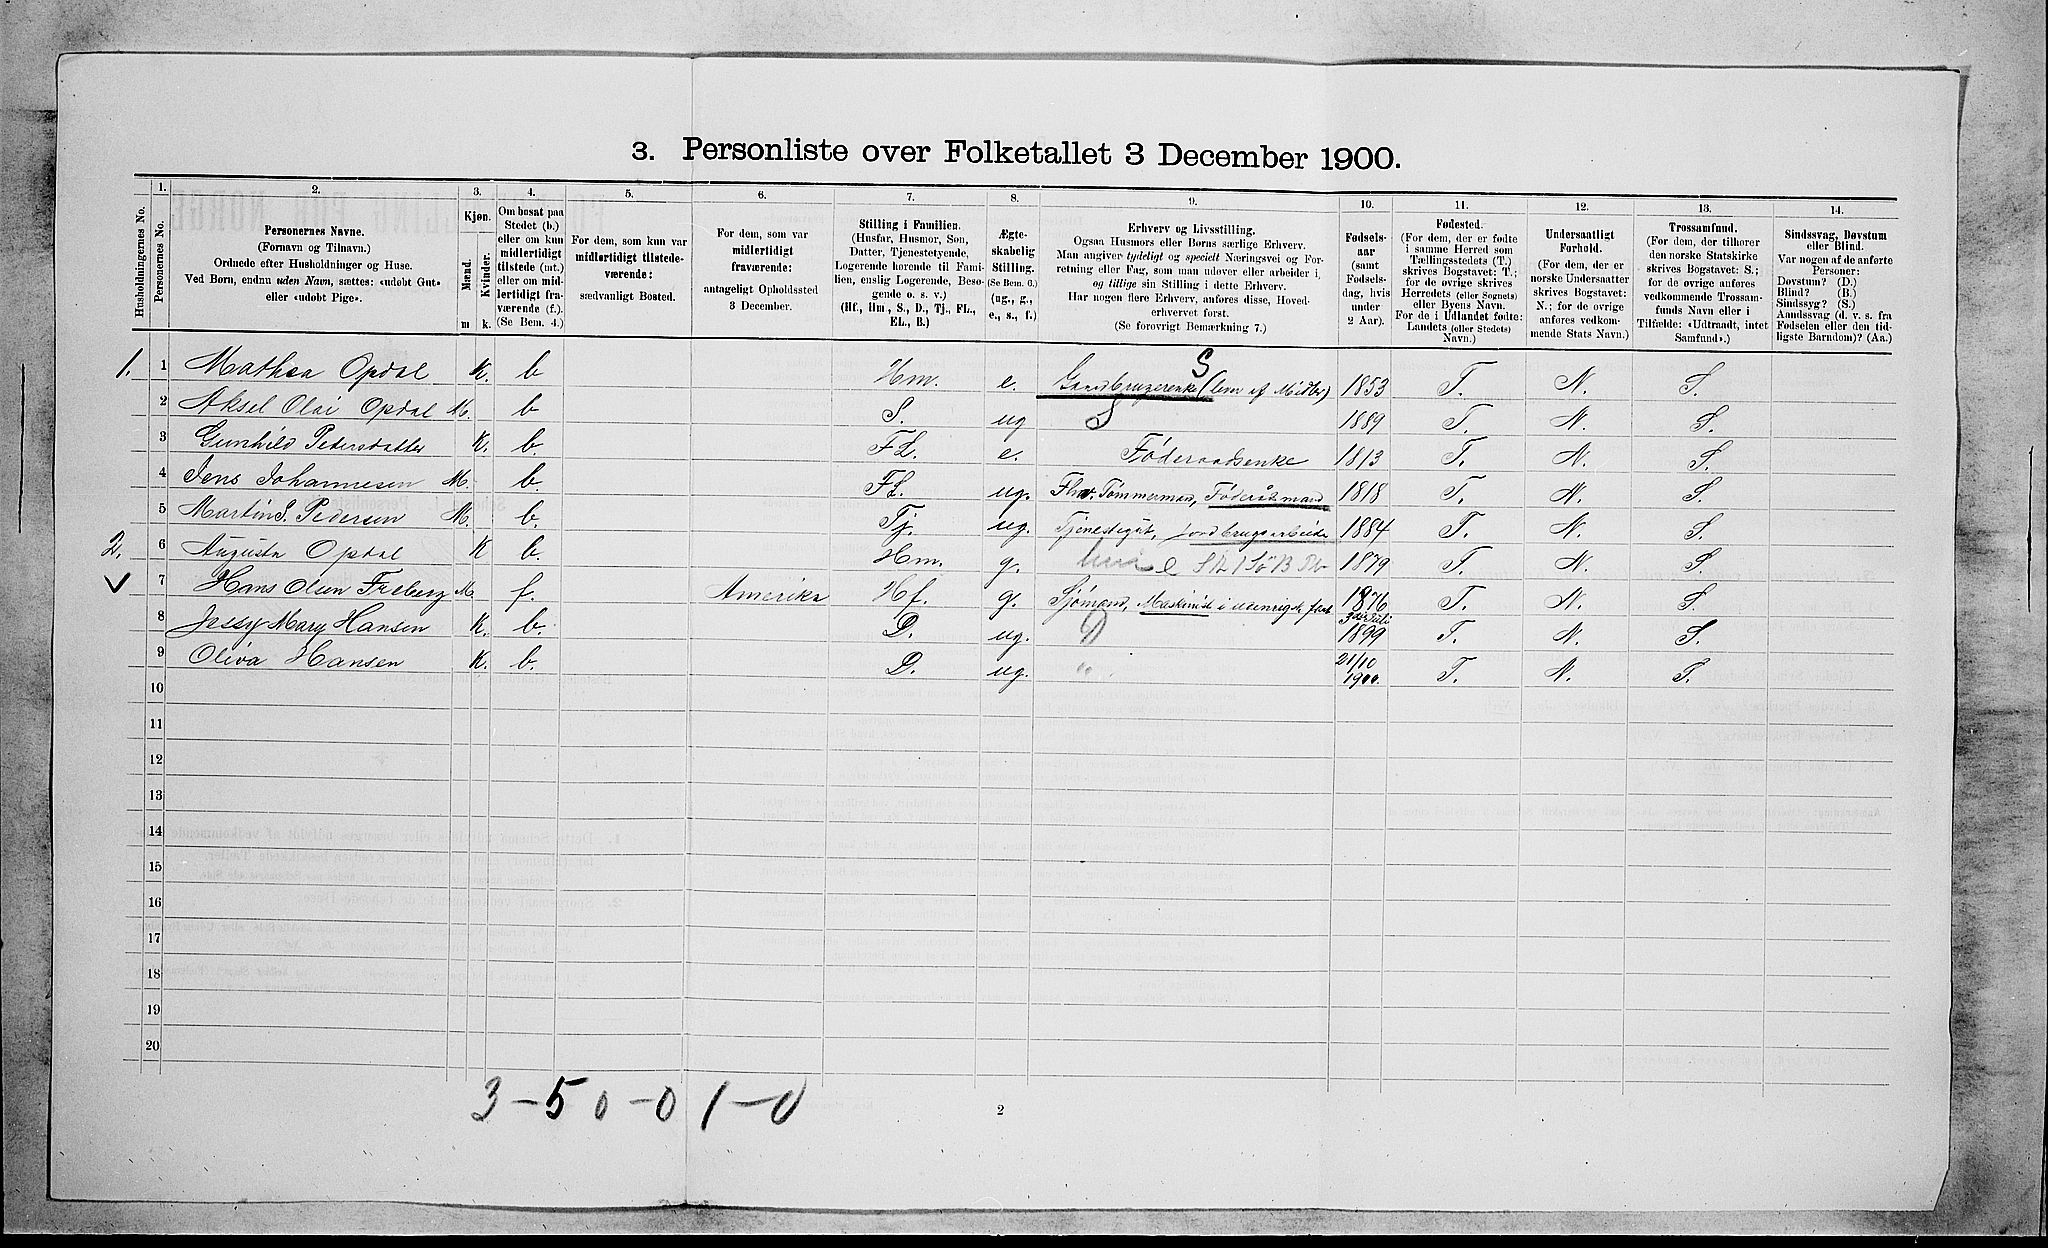 3. Personliste over Folketallet 3 December 1900.
Husholdningernes No.
1. Personernes No.
2. Personernes Navne.
(Fornavn og Tilnavn.)
Ordnede efter Husholdninger og Huse.
Ved Børn, endnu uden Navn, sættes: «udøbt Gut»
eller «udøbt Pige».
3. Kjøn.
Mænd. Kvinder.
m k.
4. Om bosat paa
Stedet (b.)
eller om kun
midlertidigt
tilstede (mt.)
eller om mid-
lertidigt fra-
værende (f.).
(Se Bem. 4.)
5. For dem, som kun var
midlertidigt tilstede-
værende:
sædvanligt Bosted.
6. For dem, som var
midlertidigt
fraværende:
antageligt Opholdssted
3 December.
7. Stilling i Familien.
(Husfar, Husmor, Søn,
Datter, Tjenestetyende,
Logerende hørende til Fami-
lien, enslig Logerende, Besø-
gende o. s. v.)
(Hf., Hm., S., D., Tj., FL.,
EL., B.)
8. Ægte-
skabelig
Stilling.
(Se Bem. 6.)
(ug., g.,
e., s., f.)
9. Erhverv og Livsstilling.
Ogsaa Husmors eller Børns særlige Erhverv.
Man angiver tydeligt og specielt Næringsvei og For-
retning eller Fag, som man udøver eller arbeider i,
og tillige sin Stilling i dette Erhverv.
Har nogen flere Erhverv, anføres disse, Hoved-
erhvervet først.
(Se forøvrigt Bemærkning 7.)
10. Fødsels-
aar
(samt
Fødsels-
dag, hvis
under
2 Aar).
11. Fødested.
(For dem, der er fødte
i samme Herred som
Tællingsstedets (T.)
skrives Bogstavet: T.;
for de øvrige skrives
Herredets (eller Sognets)
eller Byens Navn.
For de i Udlandet fødte:
Landets (eller Stedets)
Navn.)
12. Undersaatligt
Forhold.
(For dem, der er
norske Undersaatter
skrives Bogstavet:
N.; for de øvrige
anføres vedkom-
mende Stats Navn.)
13. Trossamfund.
(For dem, der tilhører
den norske Statskirke
skrives Bogstavet: S.;
for de øvrige anføres
vedkommende Trossam-
funds Navn eller i
Tilfælde: «Udtraadt, intet
Samfund».)
14. Sindssvag, Døvstum
eller Blind.
Var nogen af de anførte
Personer:
Døvstum? (D.)
Blind? (B.)
Sindssyg? (S.)
Aandssvag (d. v. s. fra
Fødselen eller den tid-
ligste Barndom)? (Aa.)
1. 1 Mathea Opdal K. b Hm. e. Gaardbrugerenke S 1853 T. N. S.
2 Aksel Olai Opdal M. b S. ug S 1889 T. N. S.
3 Gunhild Pedersdatter K. b. FL. e. Føderaadsenke 1813 T. N. S.
4 Jens Johannesen M. b. FL. ug. Fhv. Tømmermand, Føderådsmand 1818 T. N. S.
5 Martin S. Pedersen M. b. Tj. ug. Tjenestegut, Jordbrugsarbeide 1884 T. N. S.
2. 6 Augusta Opdal K b. Hm. g. 1879 T. N. S.
7 Hans Olsen Freberg M f. Amerika Hf. g. Sjømand, Maskinist i udenrigsk fart 1876 T. N. S.
8 Jessy Mary Hansen K. b. D. ug. D 3die Juli 1899 T. N. S.
9 Oliva Hansen K. b. D. ug. " 21/10 1900. T. N. S.
10
11
12
13
14
15
16
17
18
19
20
3-5 0-0 1-0
2